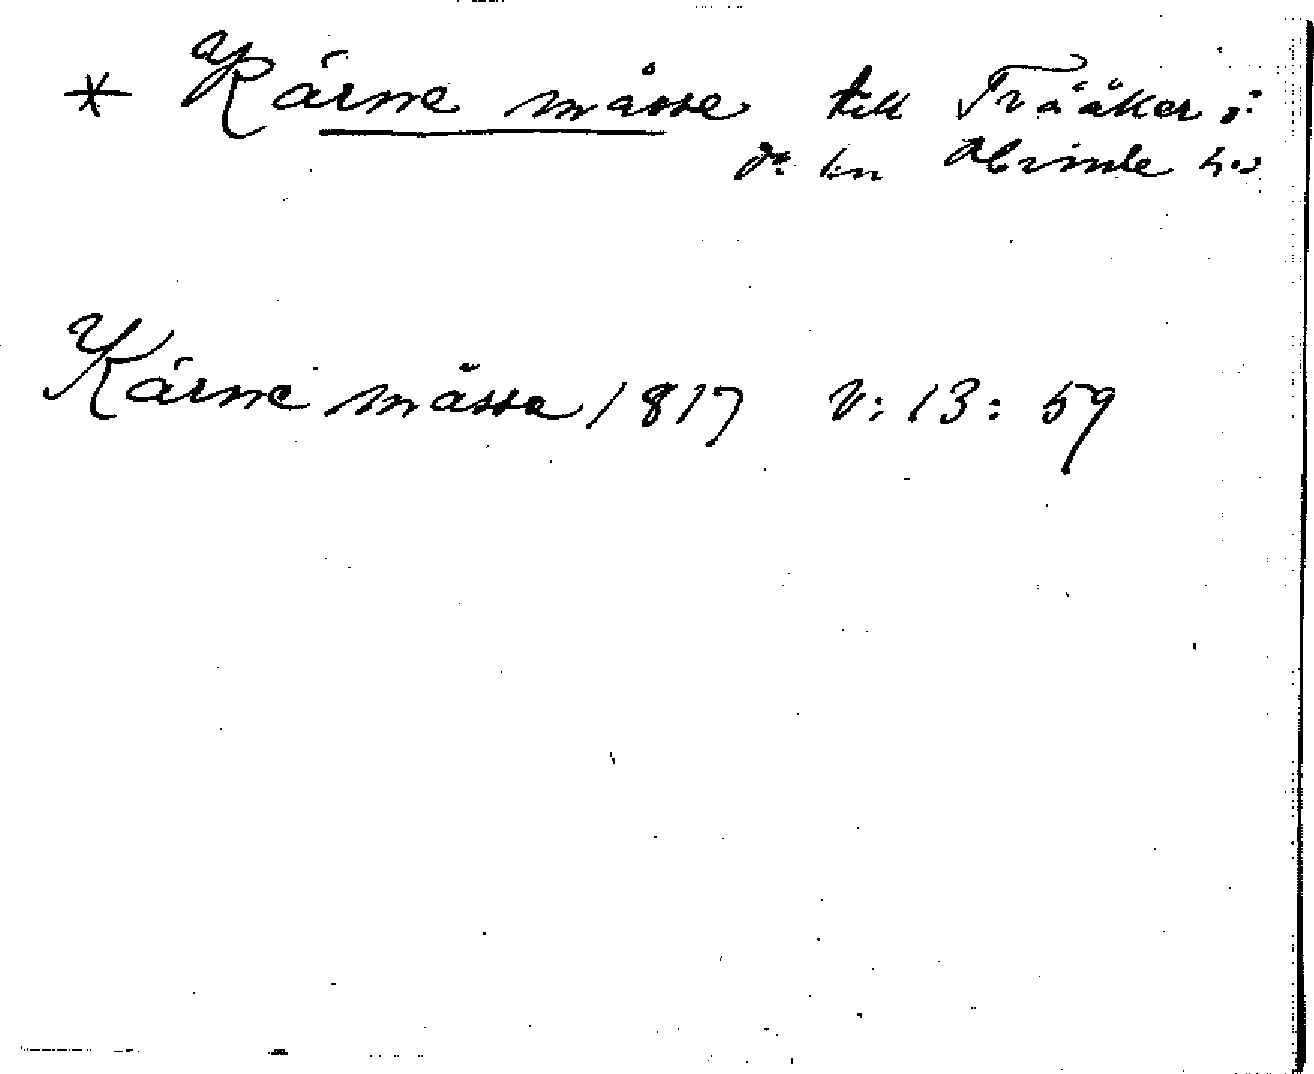 * Kärne måsse till Tvååker i
ds kn Himle hd
Kärne måssa 1817 V: 13: 59